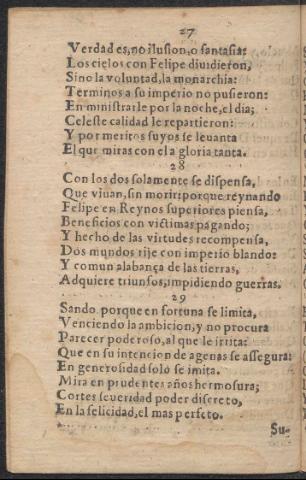 27
Verdad es, no ilusion, o fantasia:
Los cielos con Felipe diuidieron,
Sino la voluntad, la monarchia:
Terminos a su imperio no pusieron:
En ministrarle por la noche, el dia;
Celeste calidad le repartieron:
Y por meritos suyos se leuanta
El que miras con el a gloria tanta.
28
Con los dos solamente se dispensa,
Que viuan, sin morir: porque reynando
Felipe en Reynos superiores piensa,
Beneficios con victimas pagando;
Y hecho de las virtudes recompensa,
Dos mundos rije con imperio blando:
Y comun alabança de las tierras,
Adquiere triunfos, impidiendo guerras.
29
Sando. porque en fortuna se limita,
Venciendo la ambicion, y no procura
Parecer poderoso, al que le irrita:
Que en su intencion de agenas se assegura:
En generosidad solo se imita.
Mira en prudentes años hermosura;
Cortes seueridad poder discreto,
En la felicidad, el mas perfeto.
Su-